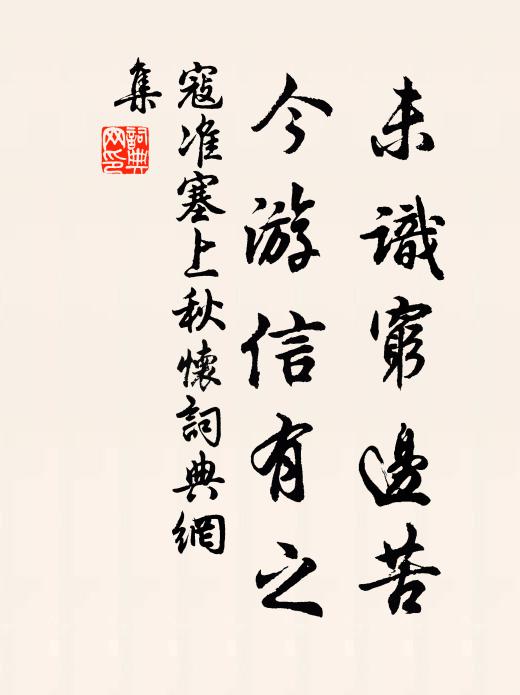 未識窮邊苦
今游信有之
寇准塞上秋懷詞典網
集
詞典
网印